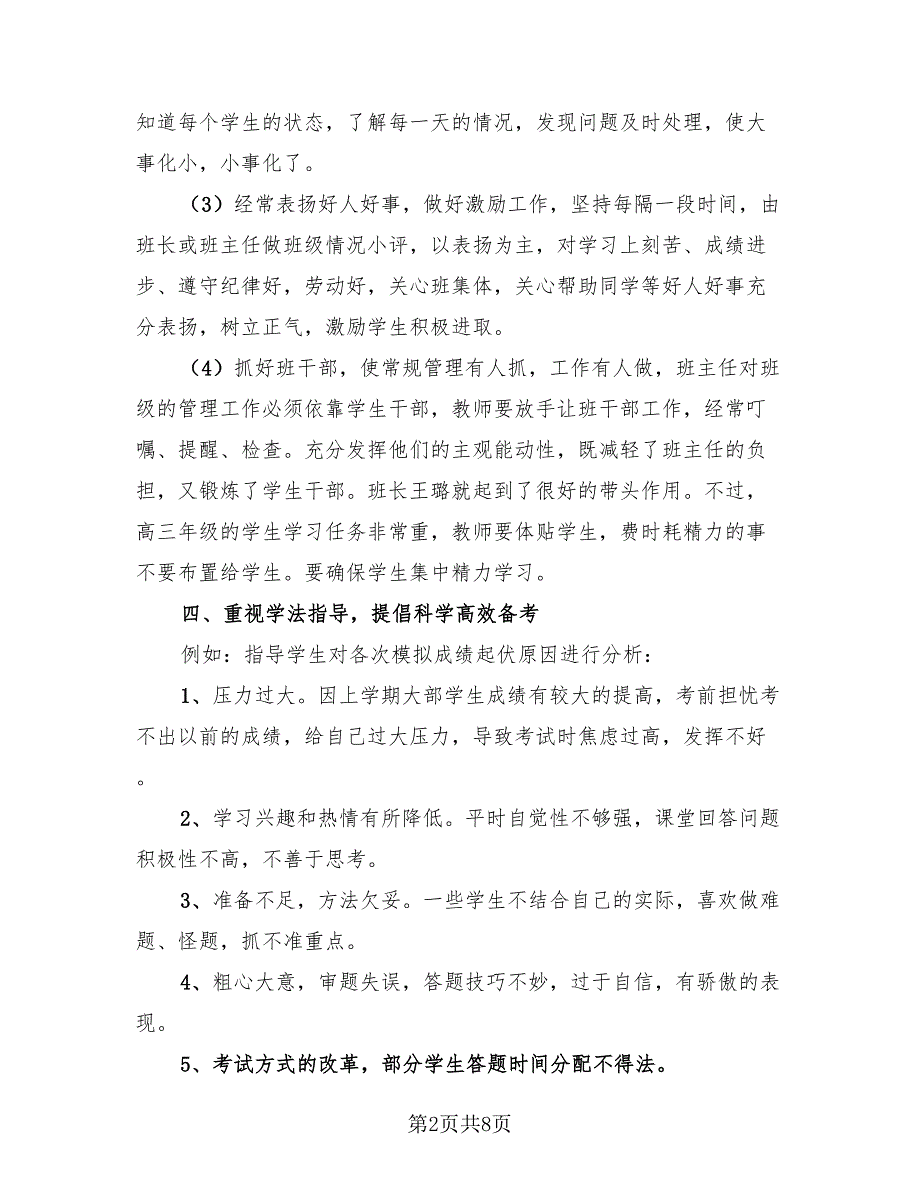 知道每个学生的状态，了解每一天的情况，发现问题及时处理，使大
事化小，小事化了。
（3）经常表扬好人好事，做好激励工作，坚持每隔一段时间，由
班长或班主任做班级情况小评，以表扬为主，对学习上刻苦、成绩进
步、遵守纪律好，劳动好，关心班集体，关心帮助同学等好人好事充
分表扬，树立正气，激励学生积极进取。
（4）抓好班干部，使常规管理有人抓，工作有人做，班主任对班
级的管理工作必须依靠学生干部，教师要放手让班干部工作，经常叮
嘱、提醒、检查。充分发挥他们的主观能动性，既减轻了班主任的负
担，又锻炼了学生干部。班长王璐就起到了很好的带头作用。不过，
高三年级的学生学习任务非常重，教师要体贴学生，费时耗精力的事
不要布置给学生。要确保学生集中精力学习。
四、重视学法指导，提倡科学高效备考
例如：指导学生对各次模拟成绩起伏原因进行分析：
1、压力过大。因上学期大部学生成绩有较大的提高，考前担忧考
不出以前的成绩，给自己过大压力，导致考试时焦虑过高，发挥不好
。
2、学习兴趣和热情有所降低。平时自觉性不够强，课堂回答问题
积极性不高，不善于思考。
3、准备不足，方法欠妥。一些学生不结合自己的实际，喜欢做难
题、怪题，抓不准重点。
4、粗心大意，审题失误，答题技巧不妙，过于自信，有骄傲的表
现。
5、考试方式的改革，部分学生答题时间分配不得法。
第2页共8页